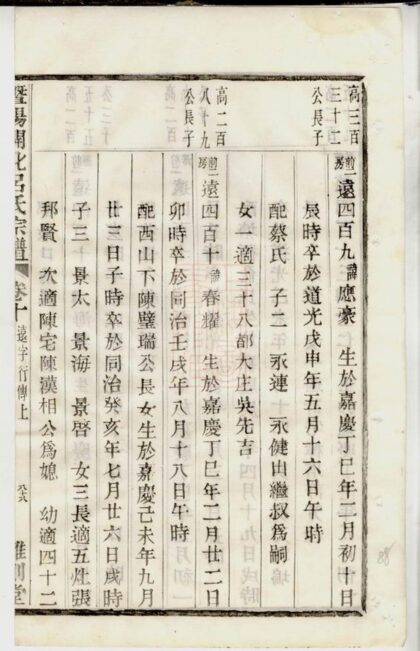 高三百
三十二
公長子
遠四百九諱應豪 生於嘉慶丁巳年二月初十日
辰時卒於道光戊申年五月十六日午時
配蔡氏 子二 永連 二永健由繼叔爲嗣
女一適三十八都大庄吳先吉
高二百
八十九
公長子
遠四百十諱春耀 生於嘉慶丁巳年二月廿二日
卯時卒於同治壬戌年八月十八日午時
配西山下陳璧瑞公長女生於嘉慶己未年九月
廿三日子時卒於同治癸亥年七月廿六日戌時
子三 景太 景海 景啓 女三長適五灶張
邦賢 次適陳宅陳漢相公爲媳 幼適四十二
暨陽開化呂氏宗譜 卷十 遠字行傳上
惟則堂
88